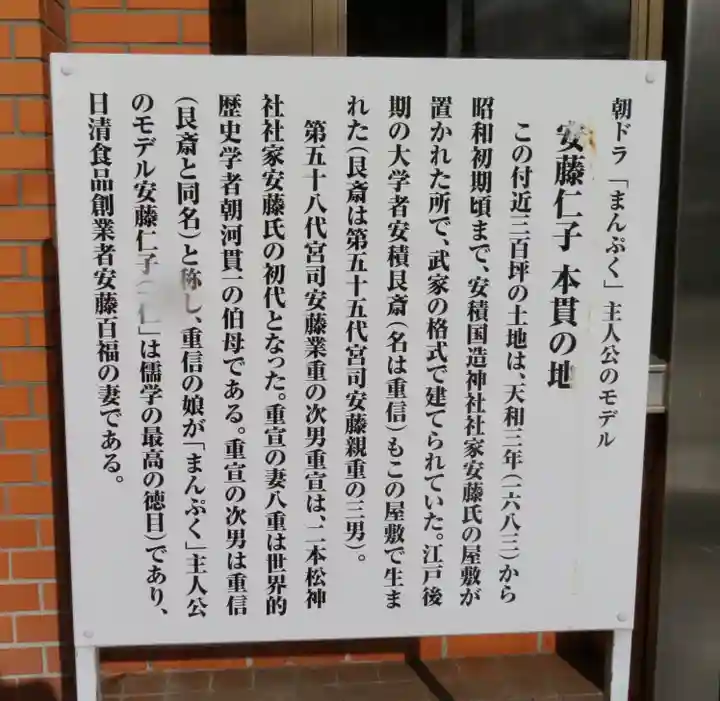 朝ドラ「まんぷく」主人公のモデル
安藤仁子 本貫の地
この付近三百坪の土地は、天和三年(一六八三)から
昭和初期頃まで、安積国造神社社家安藤氏の屋敷が
置かれた所で、武家の格式で建てられていた。江戸後
期の大学者安積艮斎(名は重信)もこの屋敷で生ま
れた(艮斎は第五十五代宮司安藤親重の三男)。
第五十八代宮司安藤業重の次男重宣は、二本松神
社社家安藤氏の初代となった。重宣の妻八重は世界的
歴史学者朝河貫一の伯母である。重宣の次男は重信
(艮斎と同名)と称し、重信の娘が「まんぷく」主人公
のモデル安藤仁子(「仁」は儒学の最高の徳目)であり、
日清食品創業者安藤百福の妻である。